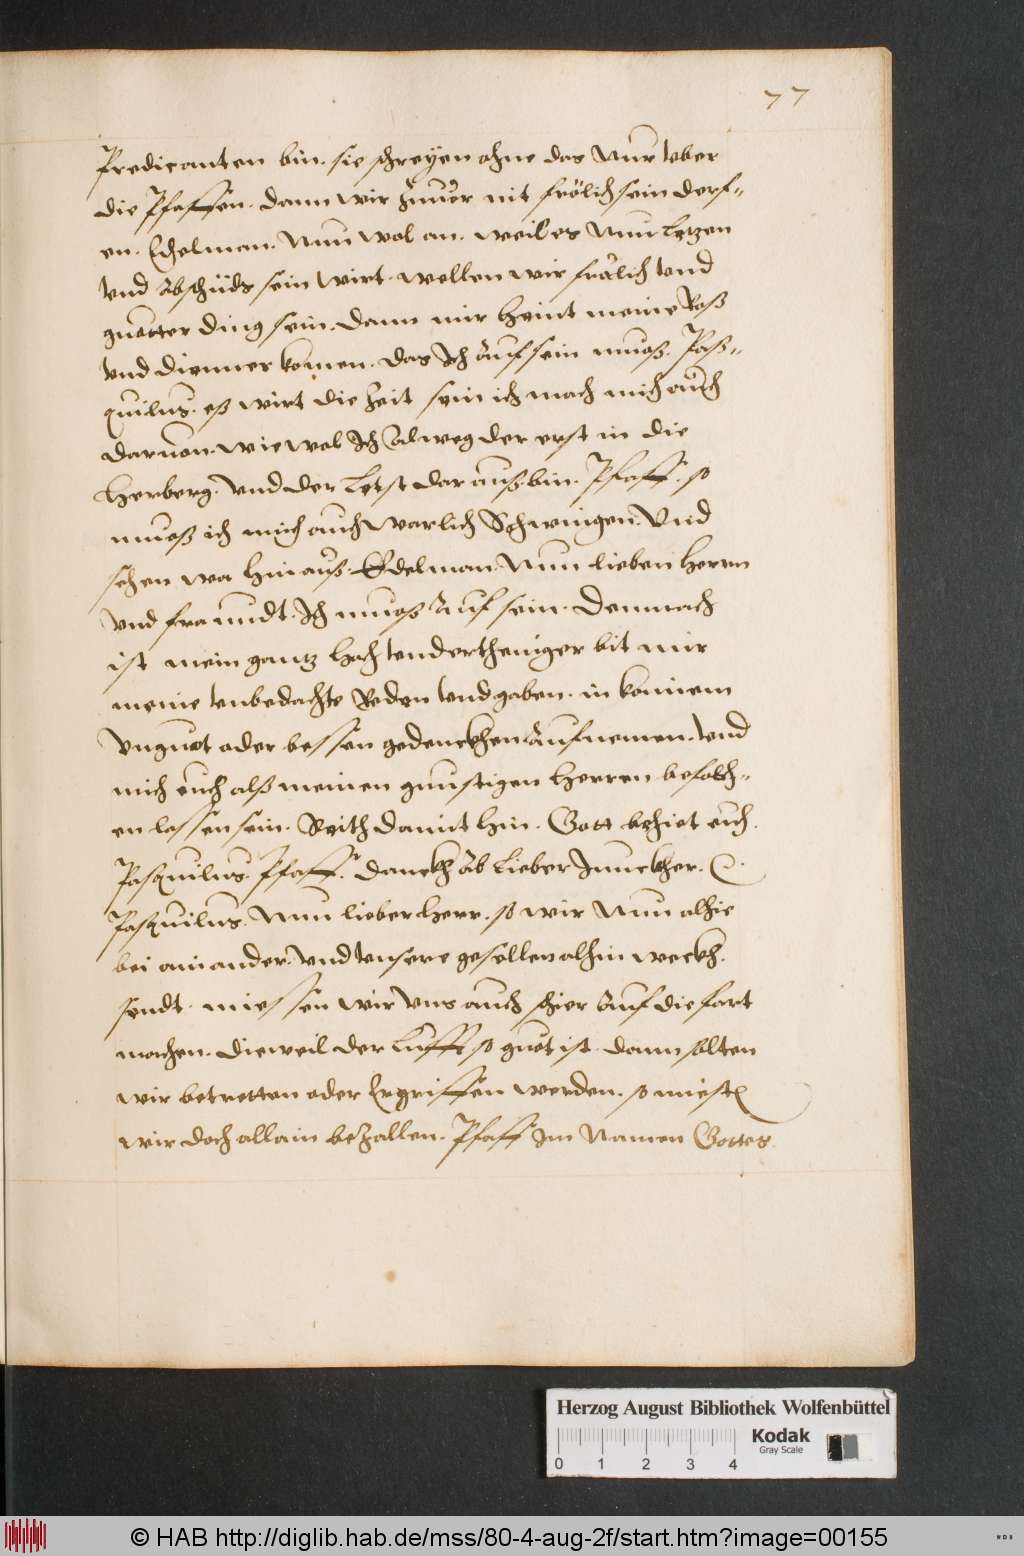 77
Predicanten bin. sie schreyen ohne das nur vber
die Pfaffen. dann wir zuuor nit frölich sein derf=
en. Edelman. Nun wol an. weil es nun Letzen
vnd abschids sein wirt. wellen wir frölich vnd
guetter ding sein. dann mir heint meine Roß
vnd dienner komen. das Ich auf sein mueß. Paß=
quilus. eß wirt die Zeit sein ich mach mich auch
daruon. wiewol Ich alweg der erst in die
Herberg. vnd der Letst dar auß bin. Pfaff. so
mueß ich mich auch warlich Schwingen. Vnd
sehen wa hinauß. Edelman. Nun lieben herrn
vnd fraundt. Ich mueß auf sein. Demnach
ist mein gantz hoch vndertheniger bit mir
meine vnbedachte Reden vnd gaben. in kainem
Vnguot oder bessen gedenckhen aufnemen. vnd
mich euch alß meinen gunstigen herren befolch=
en lassen sein. Reith damit hin. Gott behiet euch.
Pasquilus. Pfaff. danckh ab lieber Junckher.
Pasquilus. Nun lieber herr. so wir Nun alhie
bei ainander. vnd vnsere gesellen alhin weckh.
sendt. miessen wir vns auch schier auf die fart
machen. dieweil der Lufft so guot ist. dann solten
wir betretten oder Ergriffen werden. so miesten
wir doch allain bezallen. Pfaff Im Namen Gottes.
Herzog August Bibliothek Wolfenbüttel
Kodak
Gray Scale
0 1 2 3 4
© HAB http://diglib.hab.de/mss/80-4-aug-2f/start.htm?image=00155